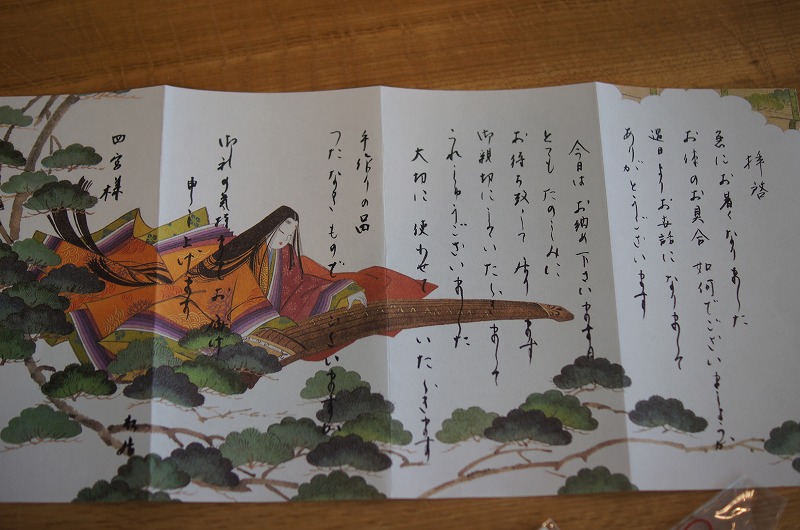 拝啓
急にお暑くなりました
お体のお具合 如何でございましょうか
過日よりお世話になりまして
ありがとうございます
今日は お納め下さいます日
とても たのしみに
お待ち致して 居ります
御親切にしていただきまして
うれしゅうございました
大切に 使わせて いただきます
手作りの品
つたなきもので ございますが
御礼の気持まで お届け
申し上げます
四宮様